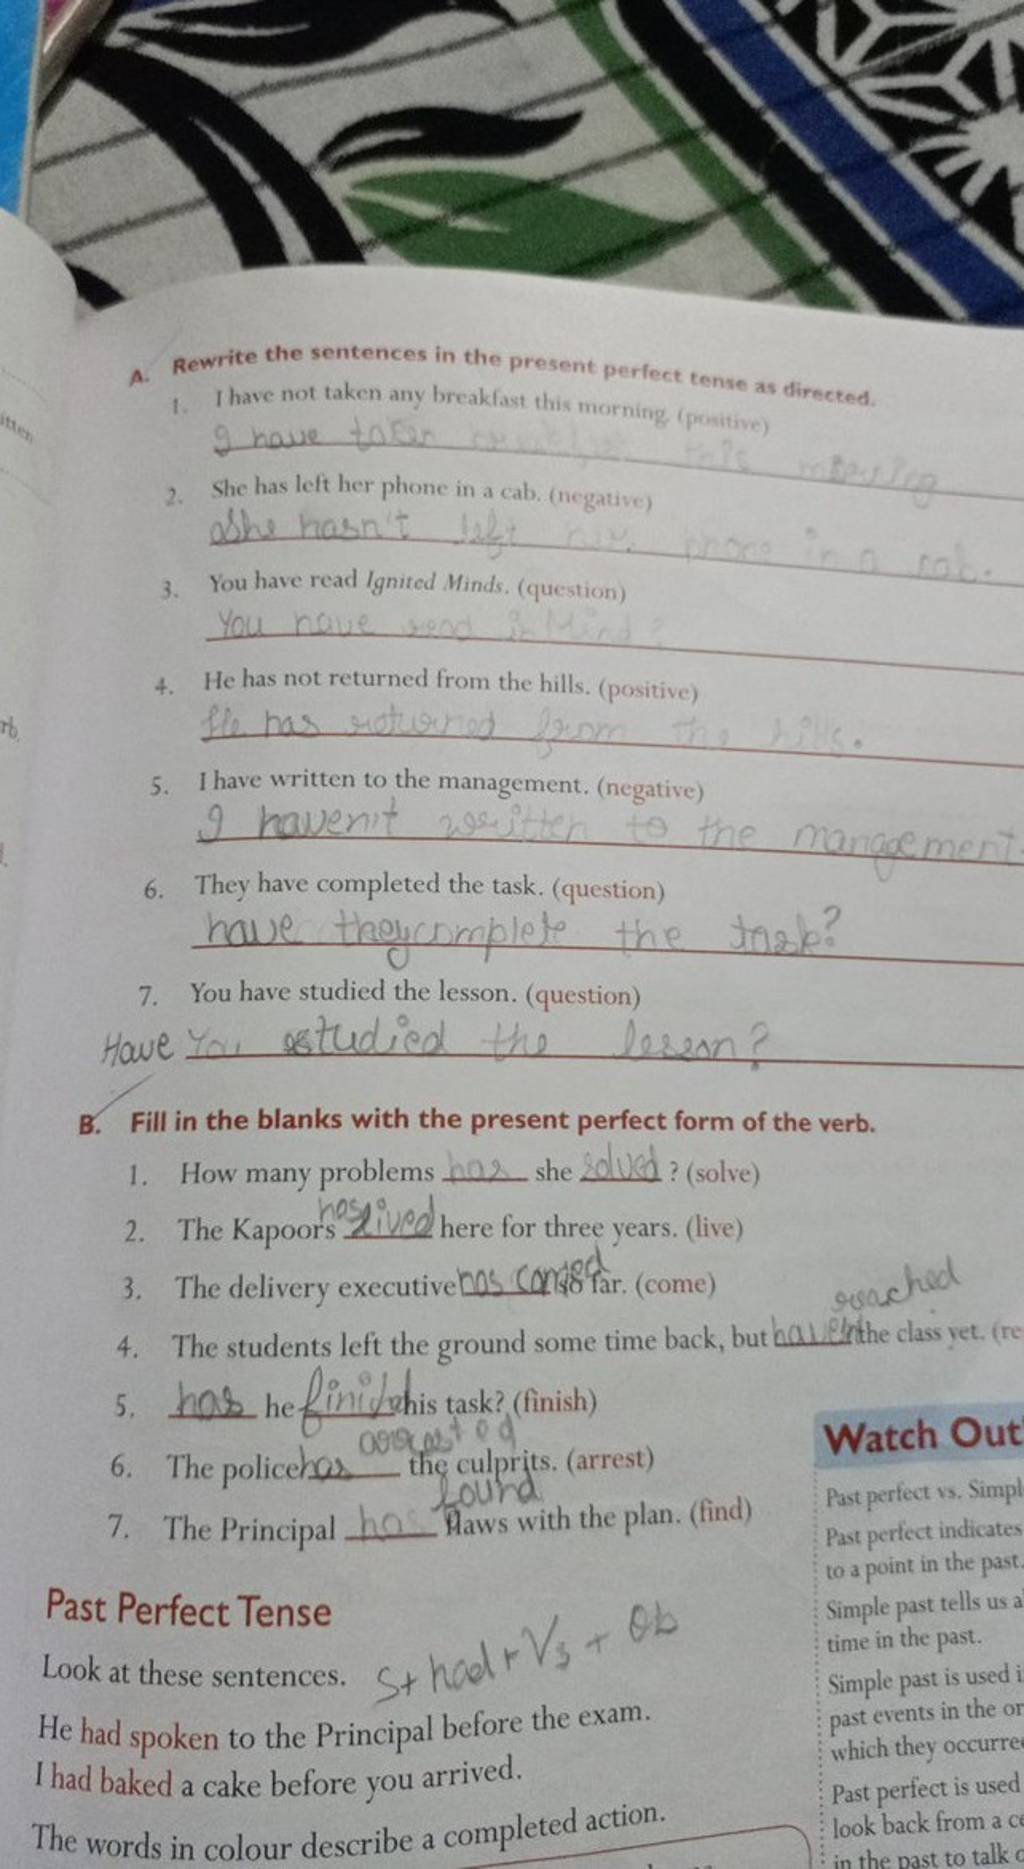 itten
A. Rewrite the sentences in the present perfect tense as directed.
1. I have not taken any breakfast this morning. (positive)
I have taken this morning
2. She has left her phone in a cab. (negative)
She hasn't left her phone in a cab.
3. You have read Ignited Minds. (question)
You have read Mind?
4. He has not returned from the hills. (positive)
rb.
He has returned from the hills.
5. I have written to the management. (negative)
I haven't written to the management.
6. They have completed the task. (question)
have they complete the task?
7. You have studied the lesson. (question)
Have You studied the lesson?
B. Fill in the blanks with the present perfect form of the verb.
1. How many problems has she solved ? (solve)
2. The Kapoors has lived here for three years. (live)
3. The delivery executive has comed so far. (come)
reached
4. The students left the ground some time back, but haven't the class yet. (re
5. has he his task? (finish)
arrested
6. The police has the culprits. (arrest)
found
7. The Principal has flaws with the plan. (find)
Watch Out
Past perfect vs. Simpl
Past perfect indicates
to a point in the past.
Simple past tells us a
time in the past.
Simple past is used i
past events in the or
which they occurre
Past perfect is used
look back from a c
in the past to talk
Past Perfect Tense
Look at these sentences. S+ had + V3 + Ob
He had spoken to the Principal before the exam.
I had baked a cake before you arrived.
The words in colour describe a completed action.